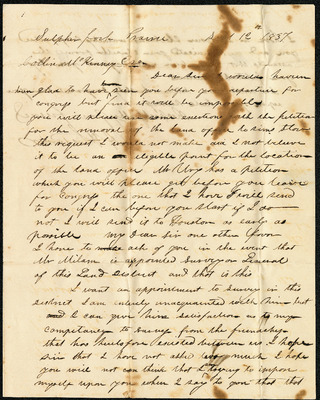 Sulpher fork Prairie Sept 12th 1837
Collin McKinney Esqr
Dear Sir I would haveen
been glad to have seen you before your departure for
congress but find it will be impossible
you will please use some exertions with the petition
for the removal of the land office to
this request I would not make did I not believe
it to be an elegible point for the location
of the land office Mr has a petition
which you will please get before you leave
for Congress the one that I have I will send
to you if I can before you start if I can
not I will send it to Houston as early as
possible my Dear sir one other favor
I have to ask of you in the event that
Mr Milam is appointed surveyor General
of this Land District and that is this
I want an appointment to survey in this
district I am entirely unacquainted with him but
I can give him satisfaction as to my
competency to survey from the friendship
that has heretofore existed between us I hope
sir that I have not asked too much I hope
you will not think that I trying to impose
myself upon you when I say to you that that